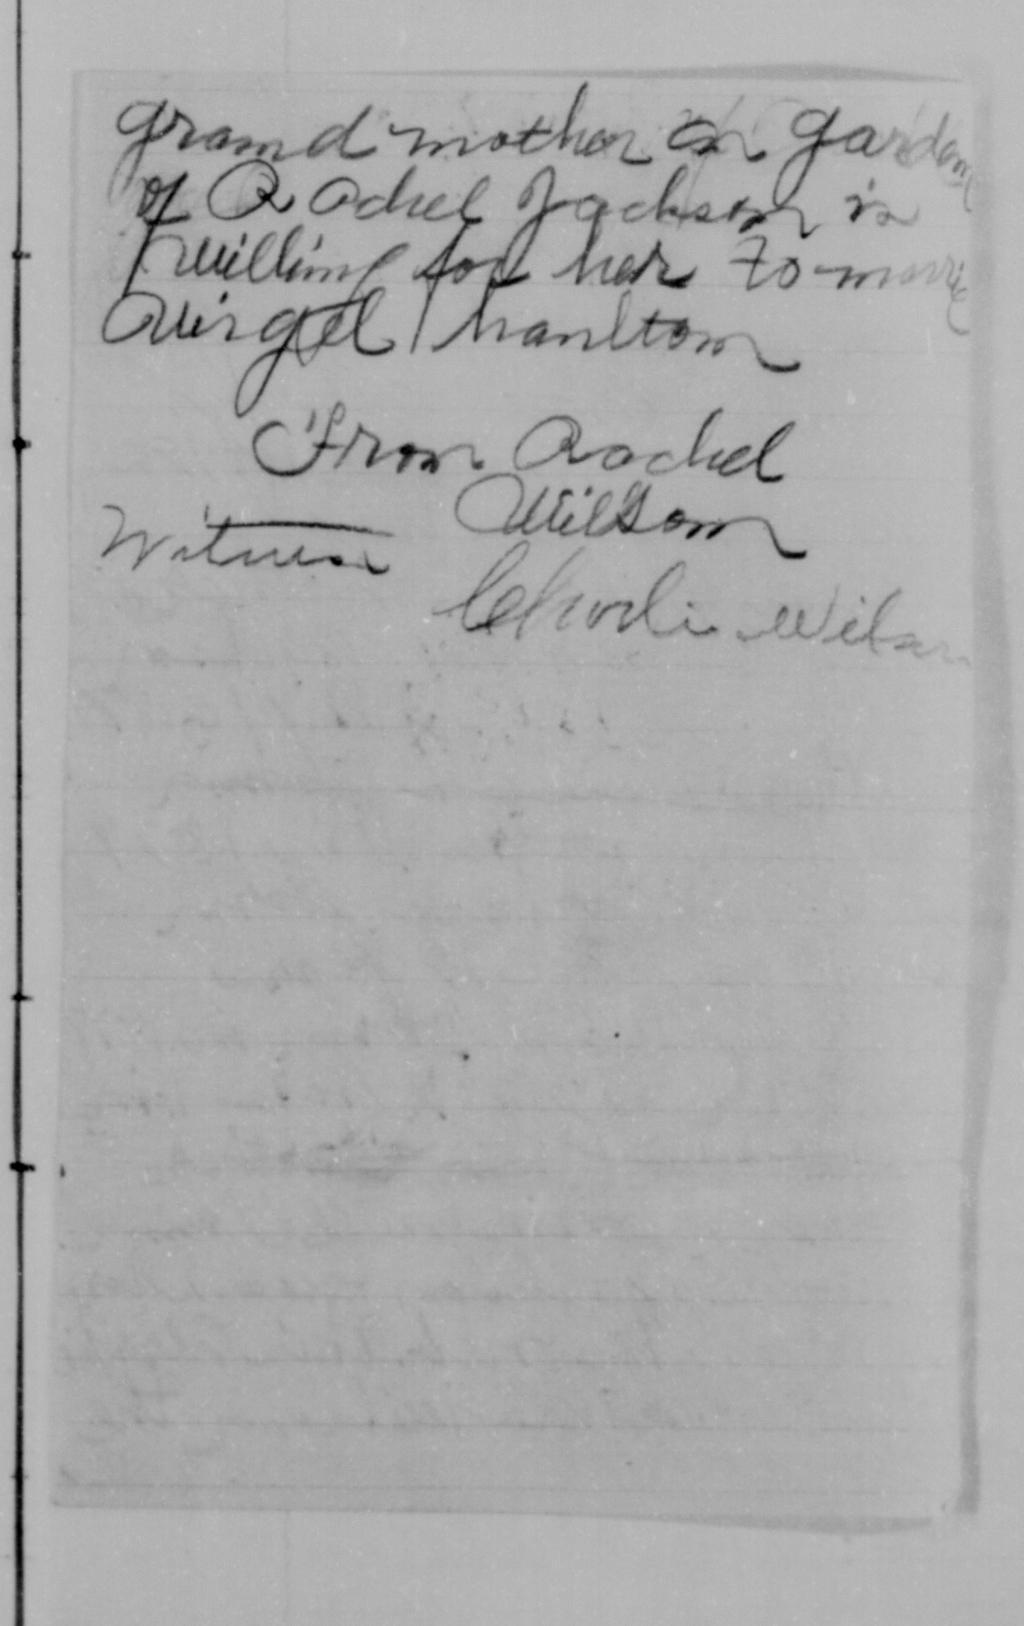 grand mother or gardem
of Rachel Jackson is
willing for her to marrie
Virgel hamltom
From Rachel
Wilsom
Witness
Charli Wilson